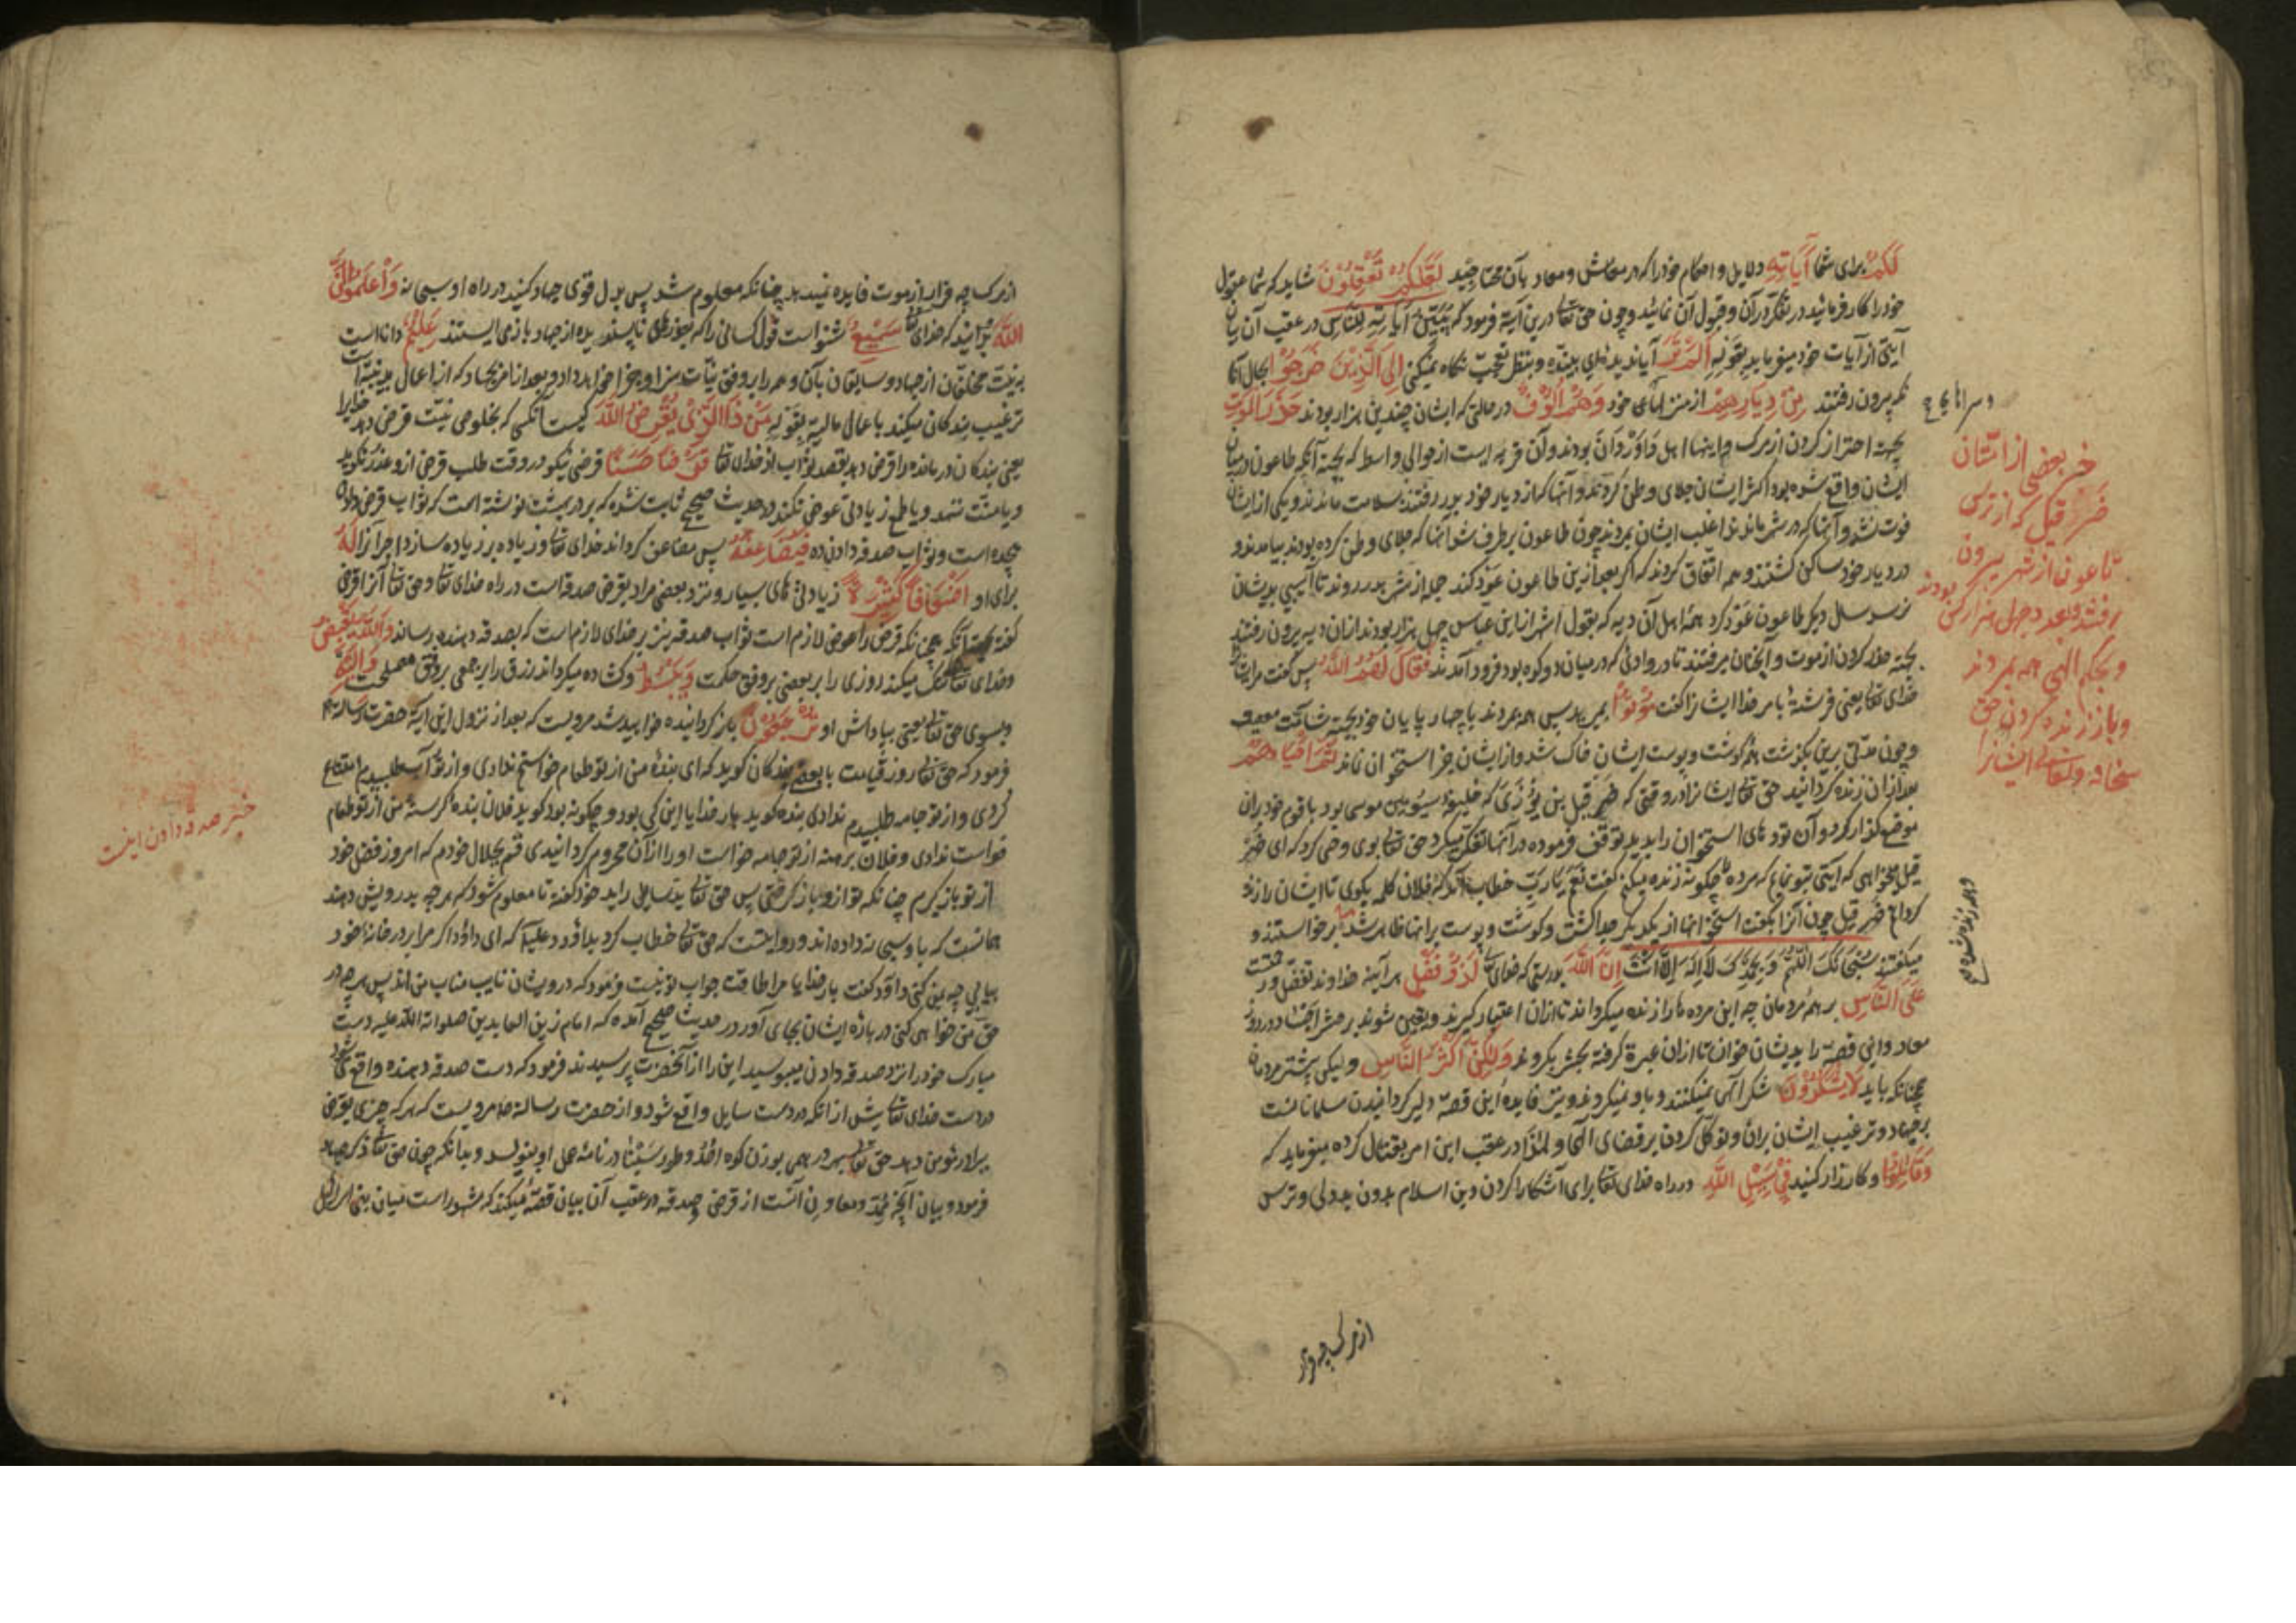 لَكُمْ برای شما آيَاتِهِ دلایل و احکام خود را که در معاش و معاد بآن محتاجید لَعَلَّكُمْ تَعْقِلُوْنَ شاید که شما عقول
خود را کار فرمائید در تفکر در آن و قبول آن نمائید و چون حق تعا درین آیة فرمود که يُبَيِّنُ آيَاتِهِ لِلنَّاسِ در عقب آن بیان
آیتی از آیات خود میفرماید بقوله اَلَمْ تَرَ آیا ندیدهٔ ای بیننده و بنظر تعجب نگاه نمیکنی اِلَى الَّذِيْنَ خَرَجُوْا بحال آنا
نکه بیرون رفتند مِنْ دِيَارِهِمْ از منزلهای خود وَهُمْ اُلُوْفٌ در حالتی که ایشان چندین هزار بودند حَذَرَ الْمَوْتِ
بجهة احتراز کردن از مرک و اینها اهل دَاوَرْدَانْ بودند و آن قریه ایست از حوالی واسط که بجهة آنکه طاعون در میان
ایشان واقع شده بود اکثر ایشان جلای وطن کردند و آنها که از دیار خود بدر رفتند بسلامت ماندند و یکی از ایشان
فوت نشد و آنها که در شهر ماندند اغلب ایشان بمردند چون طاعون برطرف شد آنها که جلای وطن کرده بودند بیامدند و
در دیار خود ساکن کشتند و همه اتفاق کردند که اکر بعد ازین طاعون عود کند جمله از شهر بدر روند تا آسیبی بدیشان
نرسد سال دیکر طاعون عود کرد همهٔ اهل آن دیه که بقول اشهر از ابن عباس چهل هزار بودند از آن دیه بیرون رفتند
بجهة حذر کردن از موت و آنچنان میرفتند تا در وادئی که در میان دو کوه بود فرود آمدند فَقَالَ لَهُمُ اللّٰهُ پس کفت مر ایشانرا
خدای تعا یعنی فرشتهٔ بامر خدا ایشانرا کفت مُوْتُوْا بمیرید پس همه بمردند با چهار پایان خود بجهة شامت معصیت
و چون مدتی برین بکذشت همه کوشت و پوست ایشان خاک شد و از ایشان جز استخوان نماند ثُمَّ اَحْيَاهُمْ
بعد از آن زنده کردانید حق تعا ایشانرا در وقتی که حزقیل بن بوزی که خلیفهٔ سیومین موسی بود با قوم خود بران
موضع کذار کرد و آن تودهای استخوان را بدید توقف فرموده در آنها تفکر میکرد حق تعا بوی وحی کرد که ای حز
قیل میخواهی که آیتی بتو نمایم که مرده چکونه زنده میکنم کفت نعم یا رب خطاب آمد که فلان کلمه بکوی تا ایشان را زنده
کردانم حزقیل چون آنرا بکفت استخوانها از یکدیکر جدا کشت و کوشت و پوست برانها ظاهر شد برخواستند و
میکفتند سُبْحَانَكَ اللّٰهُمَّ وَبِحَمْدِكَ لَا اِلٰهَ اِلَّا اَنْتَ اِنَّ اللّٰهَ بدرستی که خدای تعا لَذُوْ فَضْلٍ هر آینه خداوند تفضل و رحمتست
عَلَى النَّاسِ بر همهٔ مردمان چه این مردها را زنده میکرداند تا از آن اعتبار کیرند و یقین شوند بر حشر اجساد در روز
معاد و این قصه را بدیشان خوان تا از ان عبرة کرفته بحشر بکروند وَلٰكِنَّ اَكْثَرَ النَّاسِ ولیکن بیشتر مردمان
چنانکه باید لَا يَشْكُرُوْنَ شکر الهی نمیکنند و باو نمیکروند و نیز فایدهٔ این قصه دلیر کردانیدن مسلمانانست
بر جهاد و ترغیب ایشان بران و توکل کردن بر قضای الهی و لهذا در عقب این امر بقتال کرده میفرماید که
وَقَاتِلُوْا و کارزار کنید فِيْ سَبِيْلِ اللّٰهِ در راه خدای تعا برای آشکارا کردن دین اسلام بدون بددلی و ترس
خبر بعضی از امتان
حزقیل که از ترس
طاعون از شهر بیرون
رفتند و بعدد چهل هزار کس بودند
و بحکم الهی همه بمردند
و باز زنده کردن حق
سبحانه وتعالی ایشانرا
و همه زنده شده
از مرک چه فرار
از مرک چه فرار از موت فایده نمیدهد چنانکه معلوم شد پس بدل قوی جهاد کنید در راه او سبحانه وَاعْلَمُوْا اَنَّ
اللّٰهَ بدانید که خدای تعا سَمِيْعٌ شنواست قول کسانی را که بعذرهای ناپسندیده از جهاد باز می ایستند عَلِيْمٌ داناست
به نیت متخلفان از جهاد و سابقان بآن و همه را بر وفق نیات سزا و جزا خواهد داد و بعد از امر بجهاد که از اعمال بدنیه است
ترغیب بندکان میکند باعمال مالیه بقوله مَنْ ذَا الَّذِيْ يُقْرِضُ اللّٰهَ کیست آنکسی که بخلوص نیت قرض دهد خدایرا
یعنی بندکان درمانده را قرض دهد بقصد ثواب از خدای تعا قَرْضًا حَسَنًا قرضی نیکو در وقت طلب قرض ازو عذر نکوید
و یا منت ننهد و یا طمع زیادتی عوض نکند و در حدیث صحیح ثابت شده که بر در بهشت نوشته است که ثواب قرض دادن
هجده است و ثواب صدقه دادن ده فَيُضَاعِفَهُ پس مضاعف کرداند خدای تعا و زیاده بر زیاده سازد اجر آنرا لَهُ
برای او اَضْعَافًا كَثِيْرَةً زیادتی های بسیار و نزد بعضی مراد بقرض صدقه است در راه خدای تعا و حق تعا آنرا قرض
کفته بجهة آنکه همچنانکه قرض را عوض لازم است ثواب صدقه نیز بر خدای لازم است که بصدقه دهنده رساند وَاللّٰهُ يَقْبِضُ
و خدای تعا تنک میکند روزی را بر بعضی بر وفق حکمت وَيَبْسُطُ و کشاده میکرداند رزق را بر جمعی بر وفق مصلحت وَاِلَيْهِ
و بسوی حق تعا یعنی بپاداش او تُرْجَعُوْنَ باز کردانیده خواهید شد مرویست که بعد از نزول این آیة حضرت رسالة
فرمود که حق تعا روز قیامت با بعضی بندکان کوید که ای بندهٔ من از تو طعام خواستم ندادی و از تو آب طلبیدم امتناع
کردی و از تو جامه طلبیدم ندادی بنده کوید بار خدایا این کی بود و چکونه بود کوید فلان بندهٔ کرسنهٔ من از تو طعام
خواست ندادی و فلان برهنه از تو جامه خواست او را از آن محروم کردانیدی قسم بجلال خودم که امروز فضل خود
از تو باز کیرم چنانکه تو ازو باز کرفتی پس حق تعا ید سایل را ید خود کفته تا معلوم شود که هر چه بدرویش دهند
همانست که باو سبحانه داده اند و روایتست که حق تعا خطاب کرد بداود علیه که ای داود اکر مرا بر در خانهٔ خود
بیابی چه بمن کنی داود کفت بار خدایا مرا طاقت جواب تو نیست فرمود که درویشان نایب مناب من اند پس هرچه در
حق من خواهی کنی در بارهٔ ایشان بجای آور در حدیث صحیح آمده که امام زین العابدین صلوات الله علیه دست
مبارک خود را نزد صدقه دادن میبوسید این را از آنحضرت پرسیدند فرمود که دست صدقه دهنده واقع میشود
در دست خدای تعا پیش از انکه در دست سایل واقع شود و از حضرت رسالة مرویست که هر که چیزی بقرض
برادر مؤمن دهد حق تعا بهر درهمی بوزن کوه احد و طور سینا در نامهٔ عمل او بنویسد و بدانکه چون حق تعا ذکر جهاد
فرمود و بیان آنچه ممد و معاون آنست از قرض و صدقه در عقب آن بیان قصهٔ میکند که مشهور است میان بنی اسرائیل
خبر صدقه دادن اینست